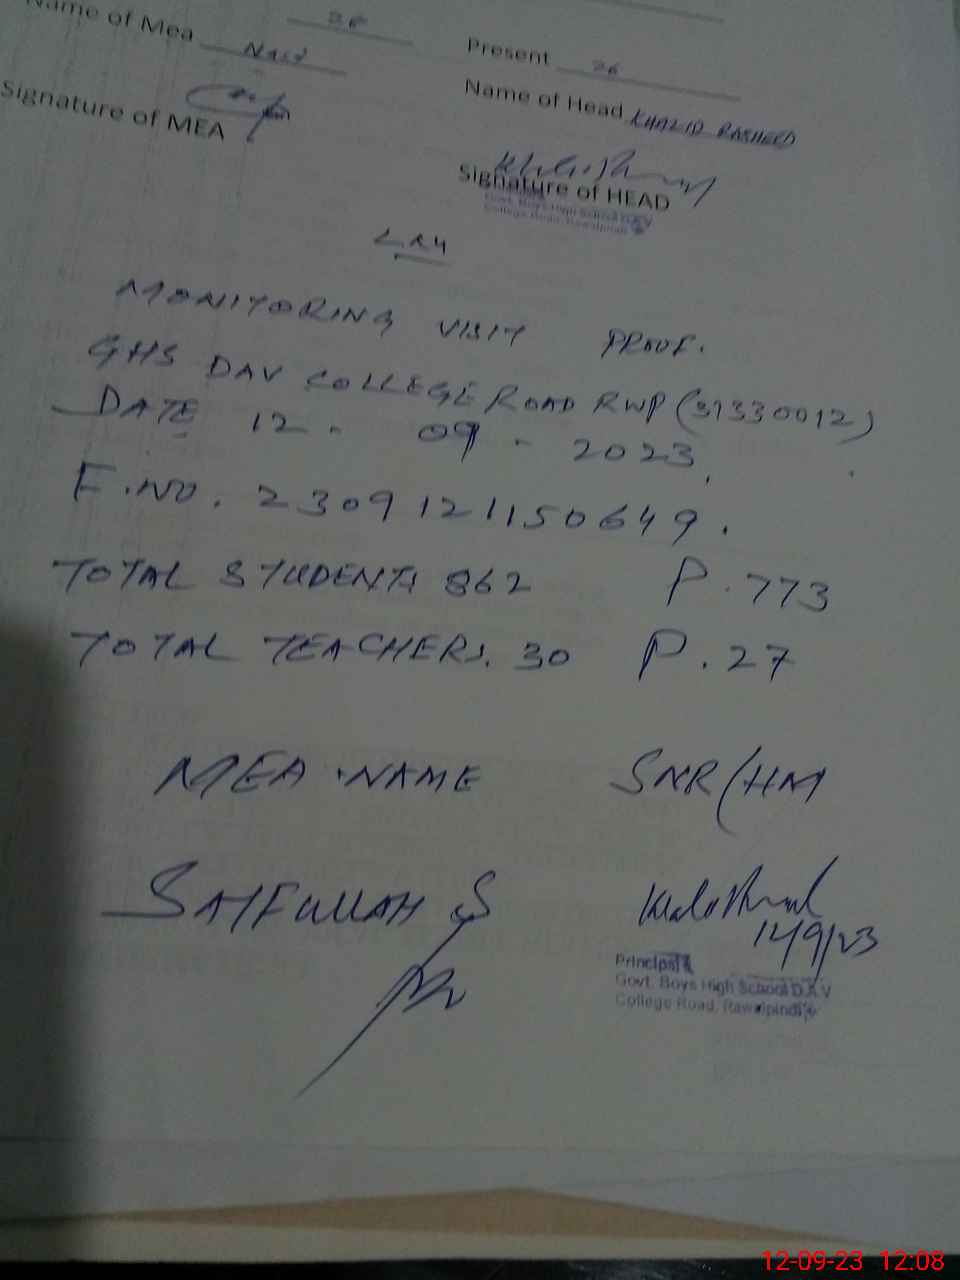 26
Name of Mea
Present 26
Signature of MEA
Name of Head KHALID RASHEED
Signature of HEAD
Govt. Boys High School D.A.V
College Road, Rawalpindi
LR4
MONITORING VISIT PROOF.
GHS DAV COLLEGE ROAD RWP (37330012)
DATE 12 - 09 - 2023.
F.NO. 2309121150649.
TOTAL STUDENTS 862 P. 773
TOTAL TEACHERS. 30 P. 27
MEA .NAME SNR/HM
SAIFULLAH S
12/9/23
Principal
Govt. Boys High School D.A.V
College Road, Rawalpindi
12-09-23 12:08